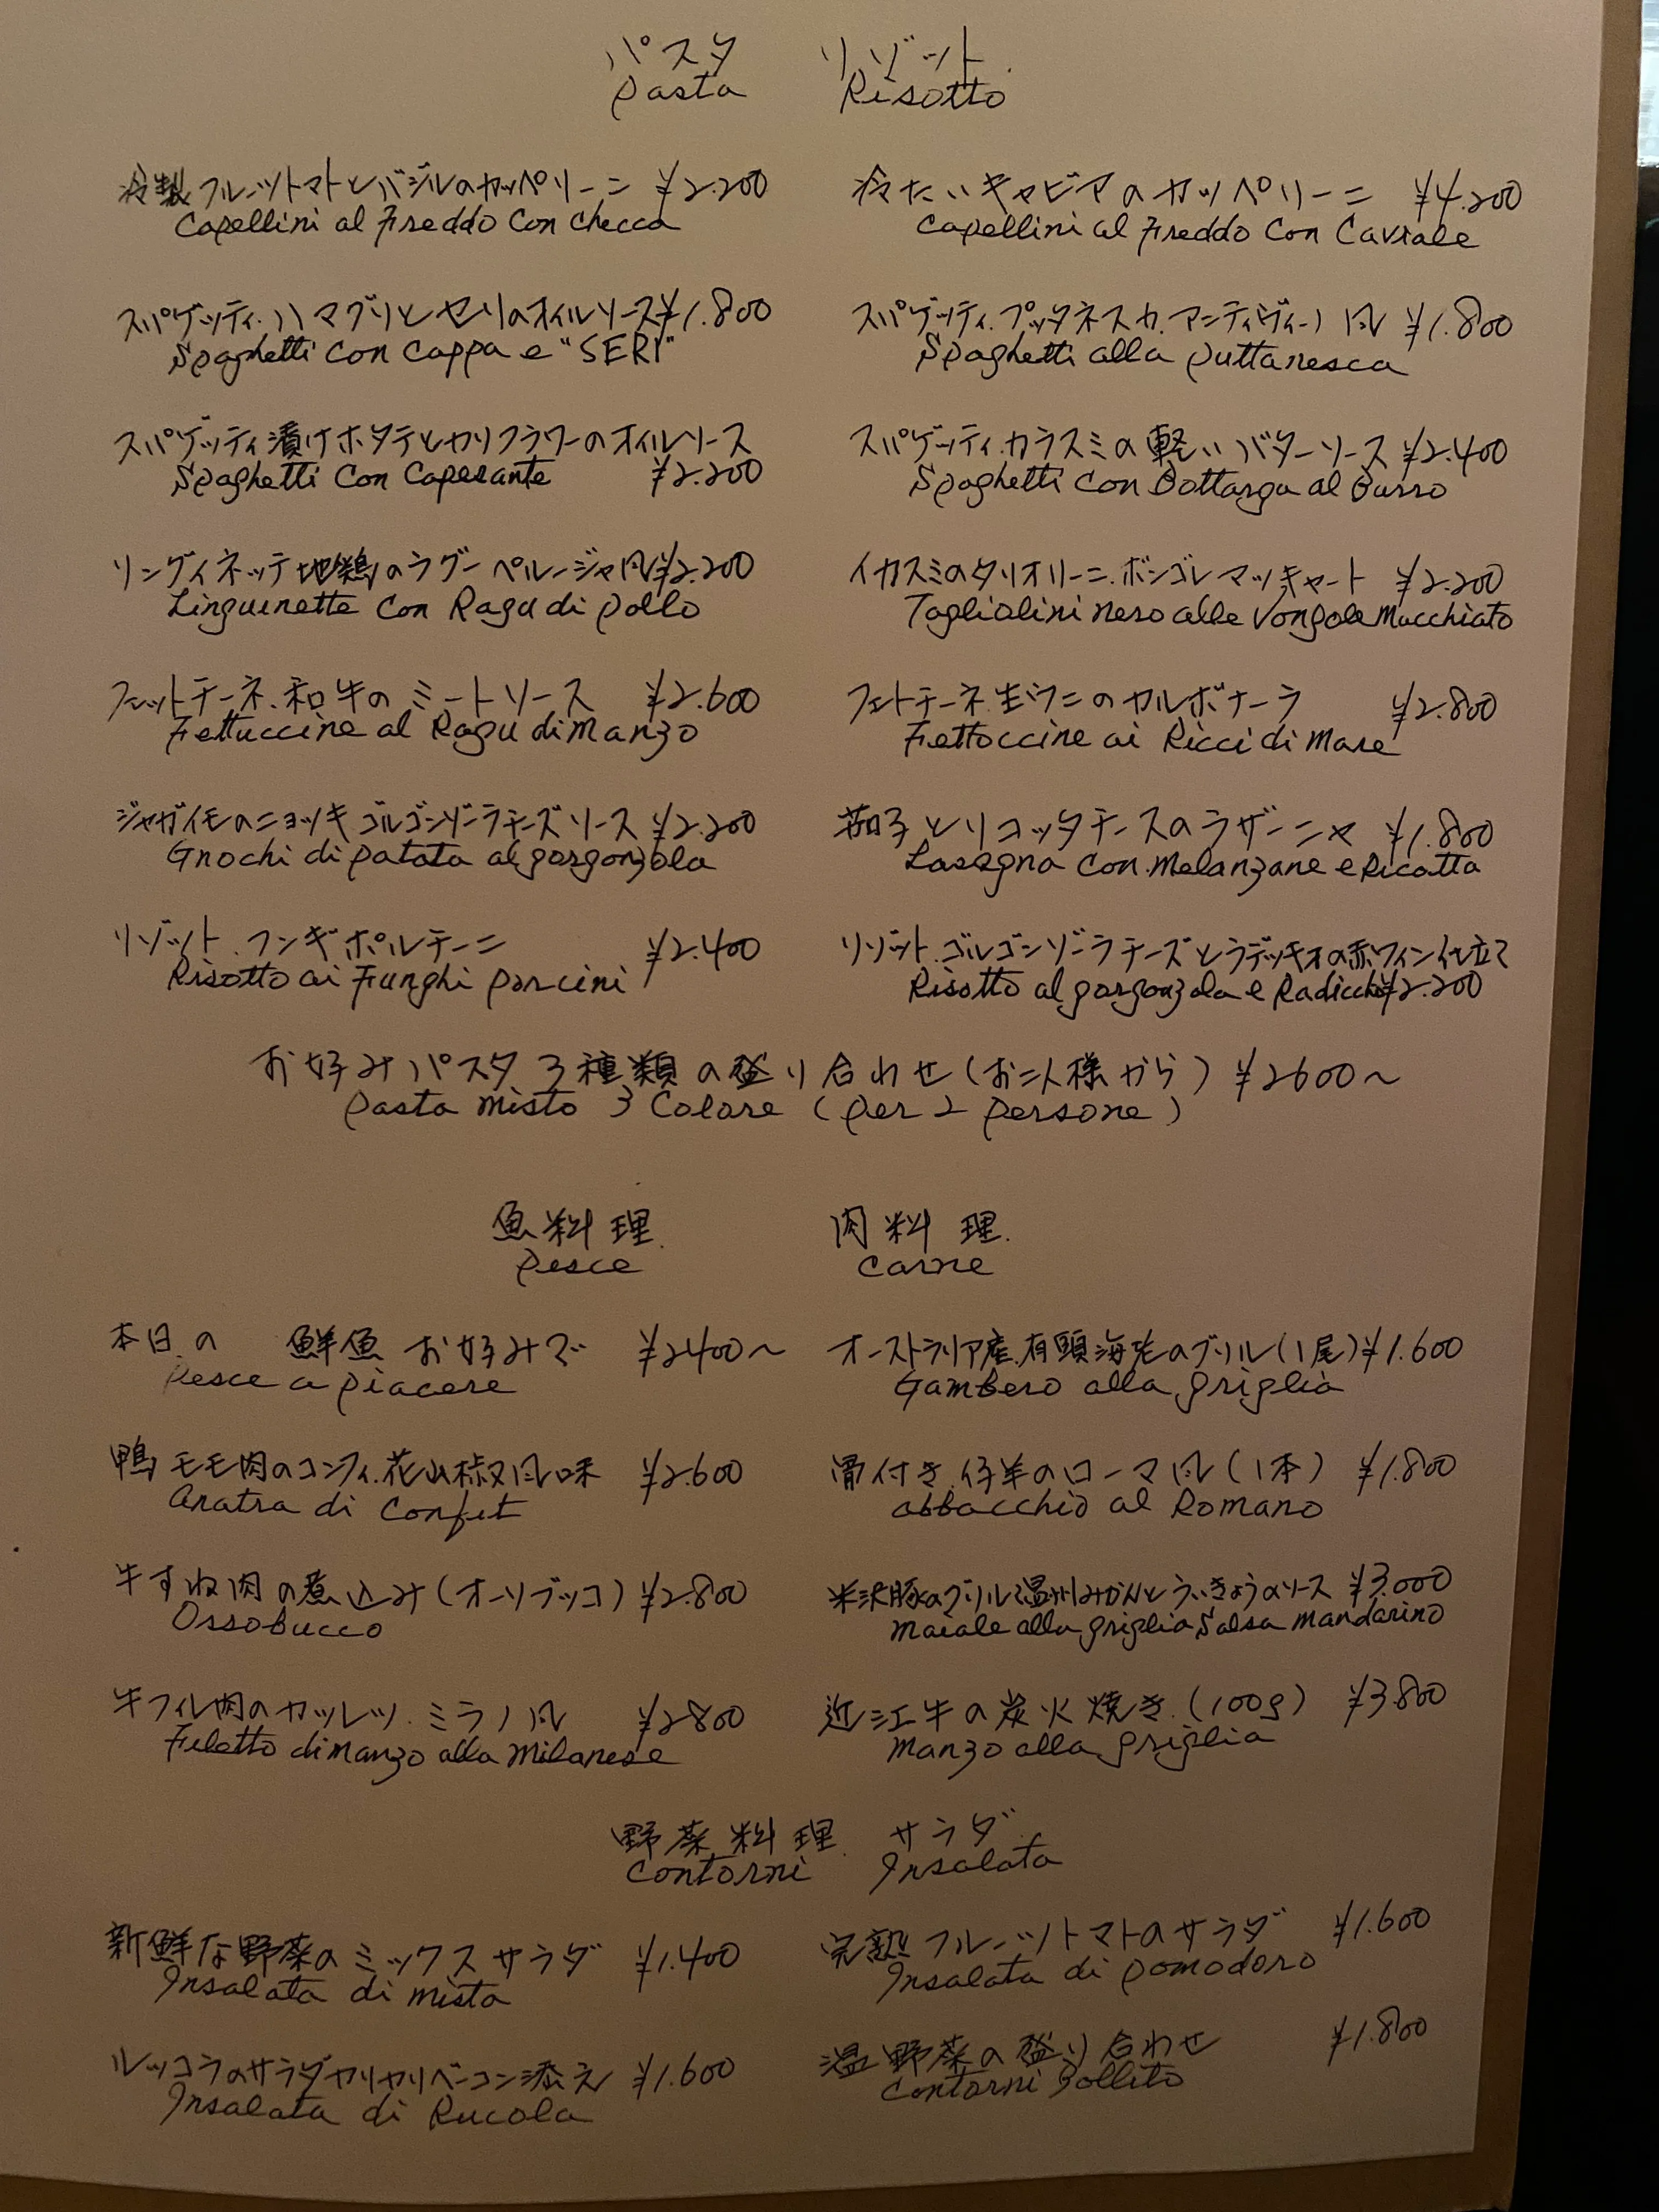 パスタ リゾット
Pasta Risotto
冷製フルーツトマトとバジルのカッペリーニ ¥2.200
Capellini al Freddo Con checca
冷たいキャビアのカッペリーニ ¥4.200
Capellini al Freddo Con Caviale
スパゲッティ.ハマグリとセリのオイルソース¥1.800
Spaghetti Con Cappa e "SERI"
スパゲッティ.プッタネスカ.アンティヴィーノ風 ¥1.800
Spaghetti alla Puttanesca
スパゲッティ漬けホタテとカリフラワーのオイルソース
Spaghetti Con Capesante ¥2.200
スパゲッティ.カラスミの軽いバターソース ¥2.400
Spaghetti Con Bottarga al Burro
リングイネッテ地鶏のラグー ペルージャ風¥2.200
Linguinette Con Ragu di Pollo
イカスミのタリオリーニ.ボンゴレマッキャート ¥2.200
Tagliolini nero alle Vongole Macchiato
フェットチーネ.和牛のミートソース ¥2.600
Fettuccine al Ragu di Manzo
フェトチーネ.生ウニのカルボナーラ ¥2.800
Fettoccine ai Ricci di Mare
ジャガイモのニョッキゴルゴンゾーラチーズソース ¥2.200
Gnochi di Patata al gorgonzola
茄子とリコッタチースのラザーニャ ¥1.800
Lasagna Con Melanzane e Ricotta
リゾット.フンギポルチーニ ¥2.400
Risotto ai Funghi Porcini
リゾット.ゴルゴンゾーラチーズとラデッキオの赤ワイン仕立て
Risotto al gorgonzola e Radicchio¥2.200
お好みパスタ3種類の盛り合わせ(お二人様から) ¥2600〜
Pasta Misto 3 Colore (Per 2 Persone)
魚料理. 肉料理.
Pesce Carne
本日の 鮮魚 お好みで ¥2400〜
Pesce a Piacere
オーストラリア産.有頭海老のグリル(1尾)¥1.600
Gambero alla griglia
鴨モモ肉のコンフィ.花山椒風味 ¥2.600
Anatra di Confit
骨付き.仔羊のローマ風(1本) ¥1.800
abbacchio al Romano
牛すね肉の煮込み(オーソブッコ) ¥2.800
Ossobucco
米沢豚のグリル温州みかんとういきょうのソース ¥3.000
Maiale alla griglia Salsa Mandarino
牛フィレ肉のカツレツ.ミラノ風 ¥2800
Filetto di Manzo alla Milanese
近江牛の炭火焼き.(100g) ¥3800
Manzo alla griglia
野菜料理. サラダ
Contorni Insalata
新鮮な野菜のミックスサラダ ¥1.400
Insalata di Mista
完熟フルーツトマトのサラダ ¥1.600
Insalata di Pomodoro
ルッコラのサラダカリカリベーコン添え ¥1.600
Insalata di Rucola
温野菜の盛り合わせ ¥1.800
Contorni Bollito